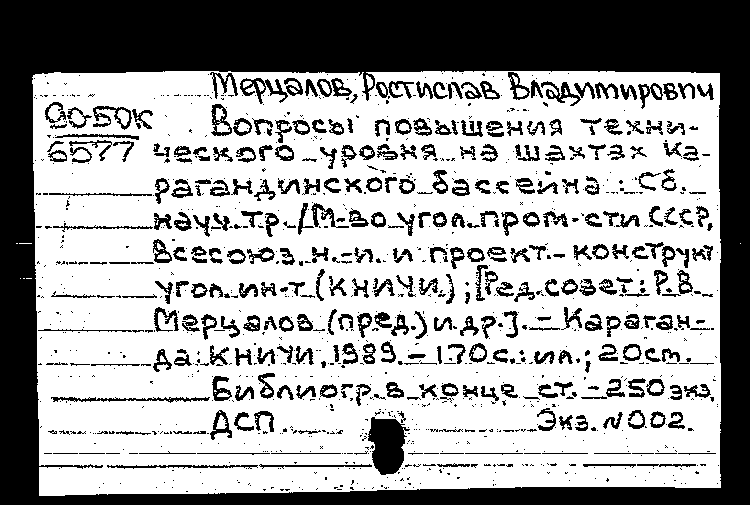 Мерцалов, Ростислав Владимирович
90-БОК Вопросы повышения техни-
6577 ческого уровня на шахтах Ка-
рагандинского бассейна : Сб.
науч. тр. / М-во угол. пром-сти СССР,
Всесоюз. н.-и. и проект.-конструкт
угол. ин-т (КНИУИ.) ; [Ред. совет : Р.В.
Мерцалов (пред.) и др.]. - Караган-
да : КНИУИ, 1989. - 170 с. : ил. ; 20 cm.
Библиогр. в конце ст. - 250 экз.
ДСП. Экз. N 002.